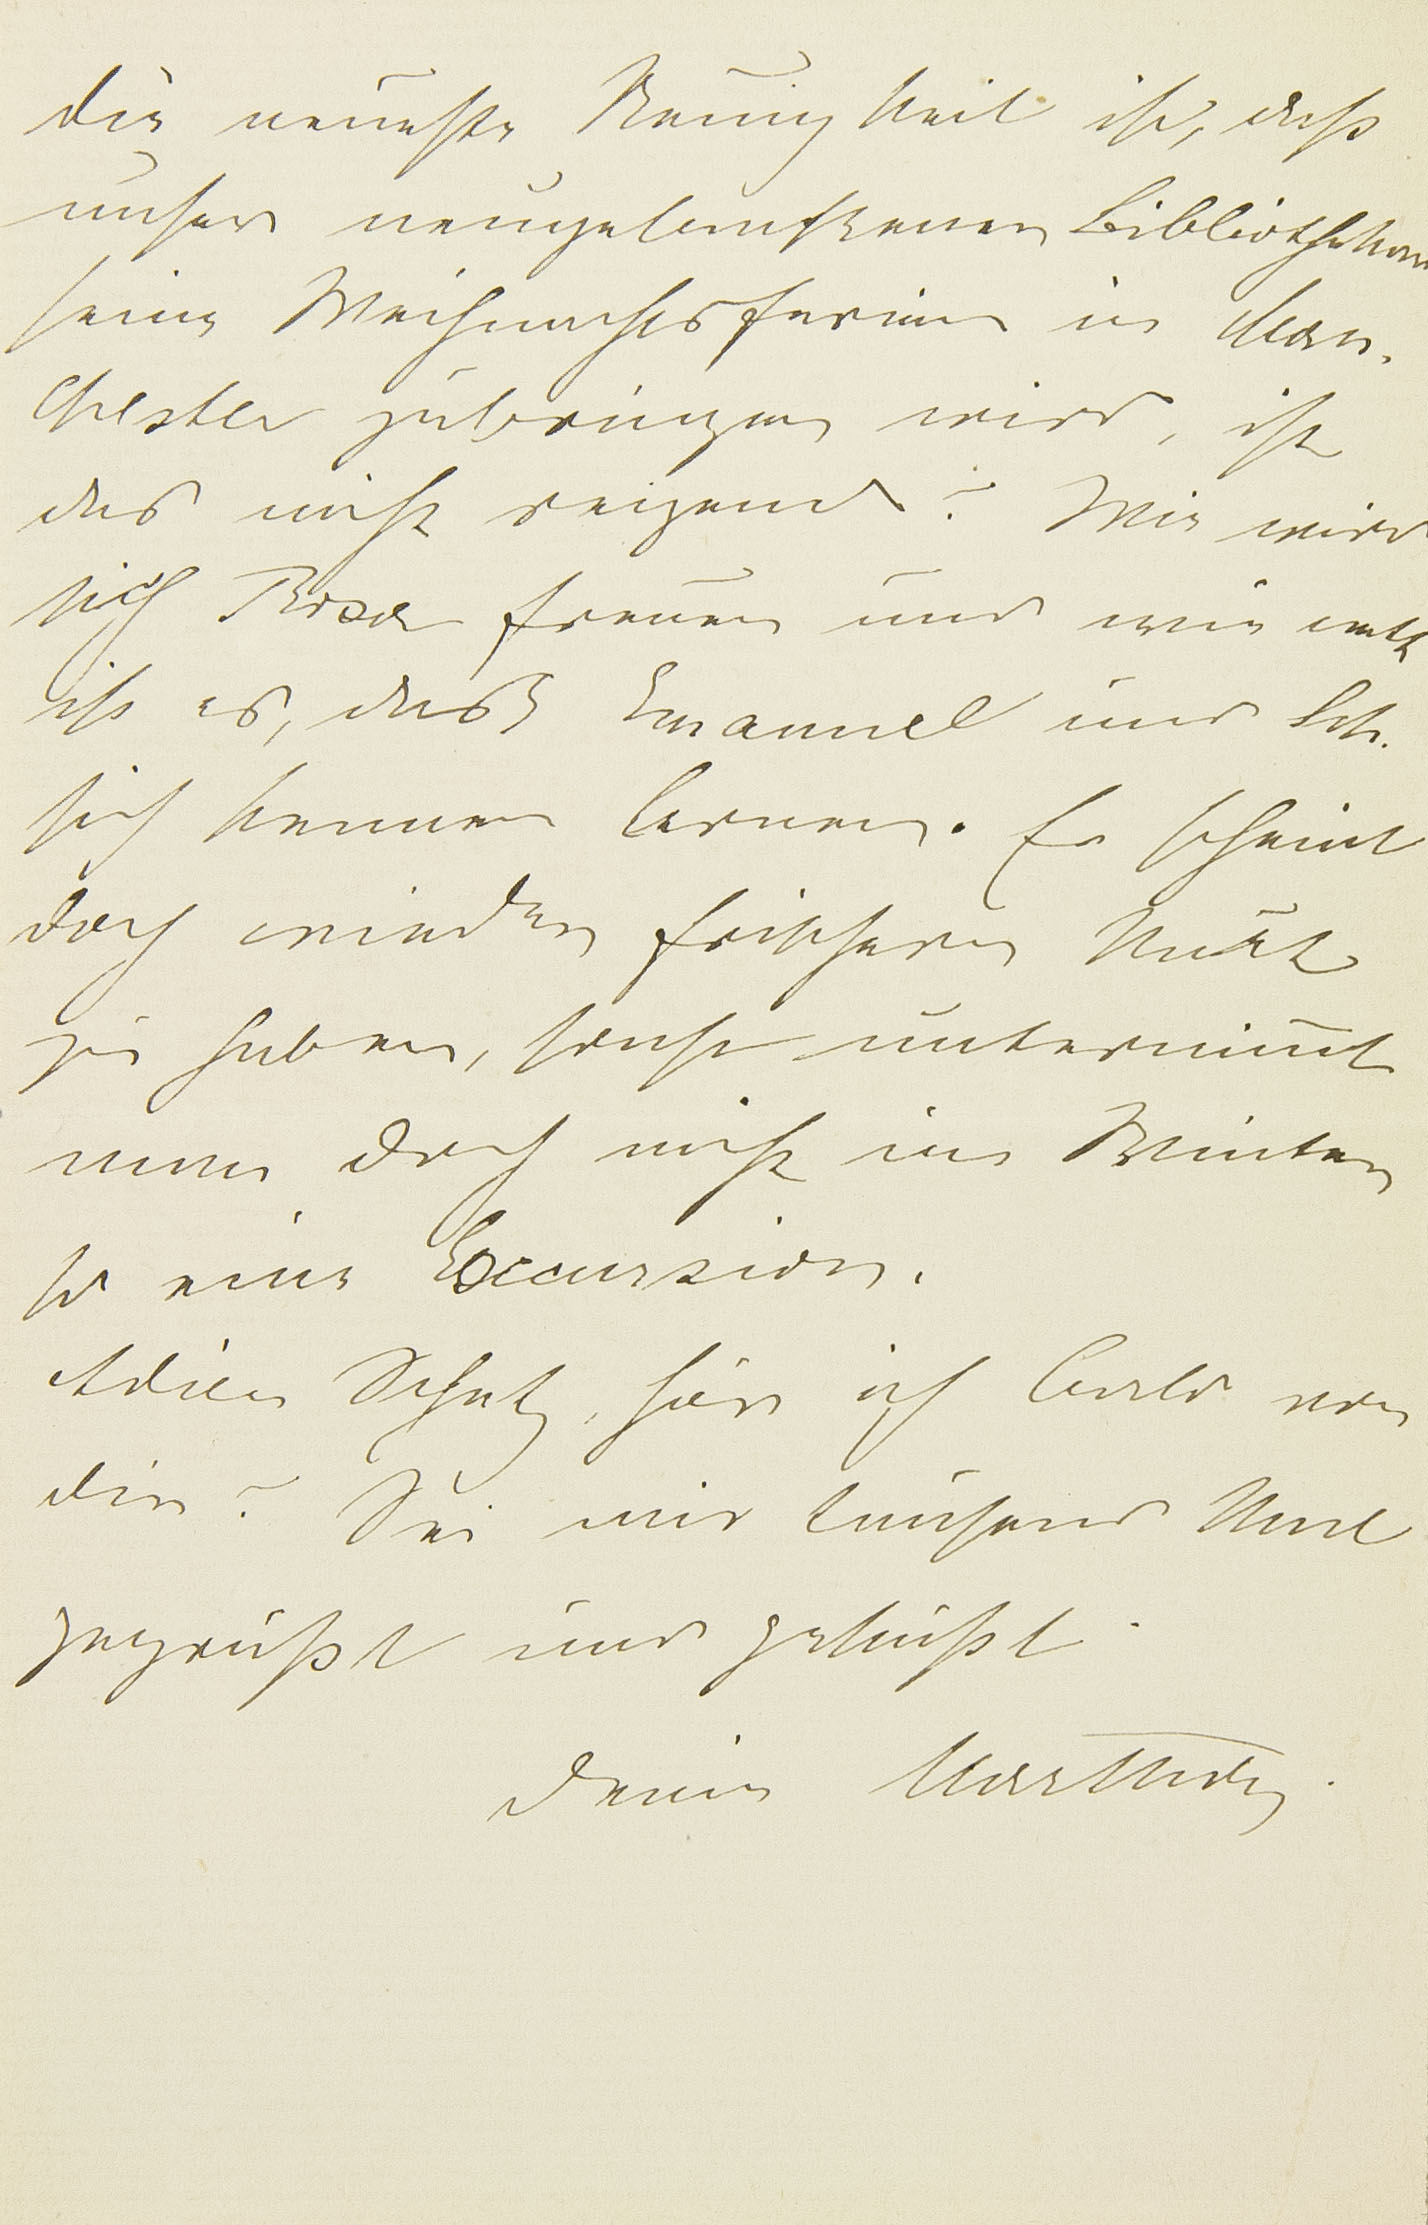 Die neueste Neuigkeit ist, daß
unser neugebackener Bibliothekar
seine Weihnachtsferien in Man-
chester zubringen wird, ist
das nicht reizend? Wie wird
sich Rosa freuen und wie nett
ist es, daß Emanuel und Sch.
sich kennen lernen. Er scheint
doch wieder frischeren Mut
zu haben, sonst unternim̅t
man doch nicht im Winter
so eine Excursion.
Adieu Schatz, hör ich bald von
dir? Sei mir tausend Mal
gegrüßt und geküßt
Deine Martha.